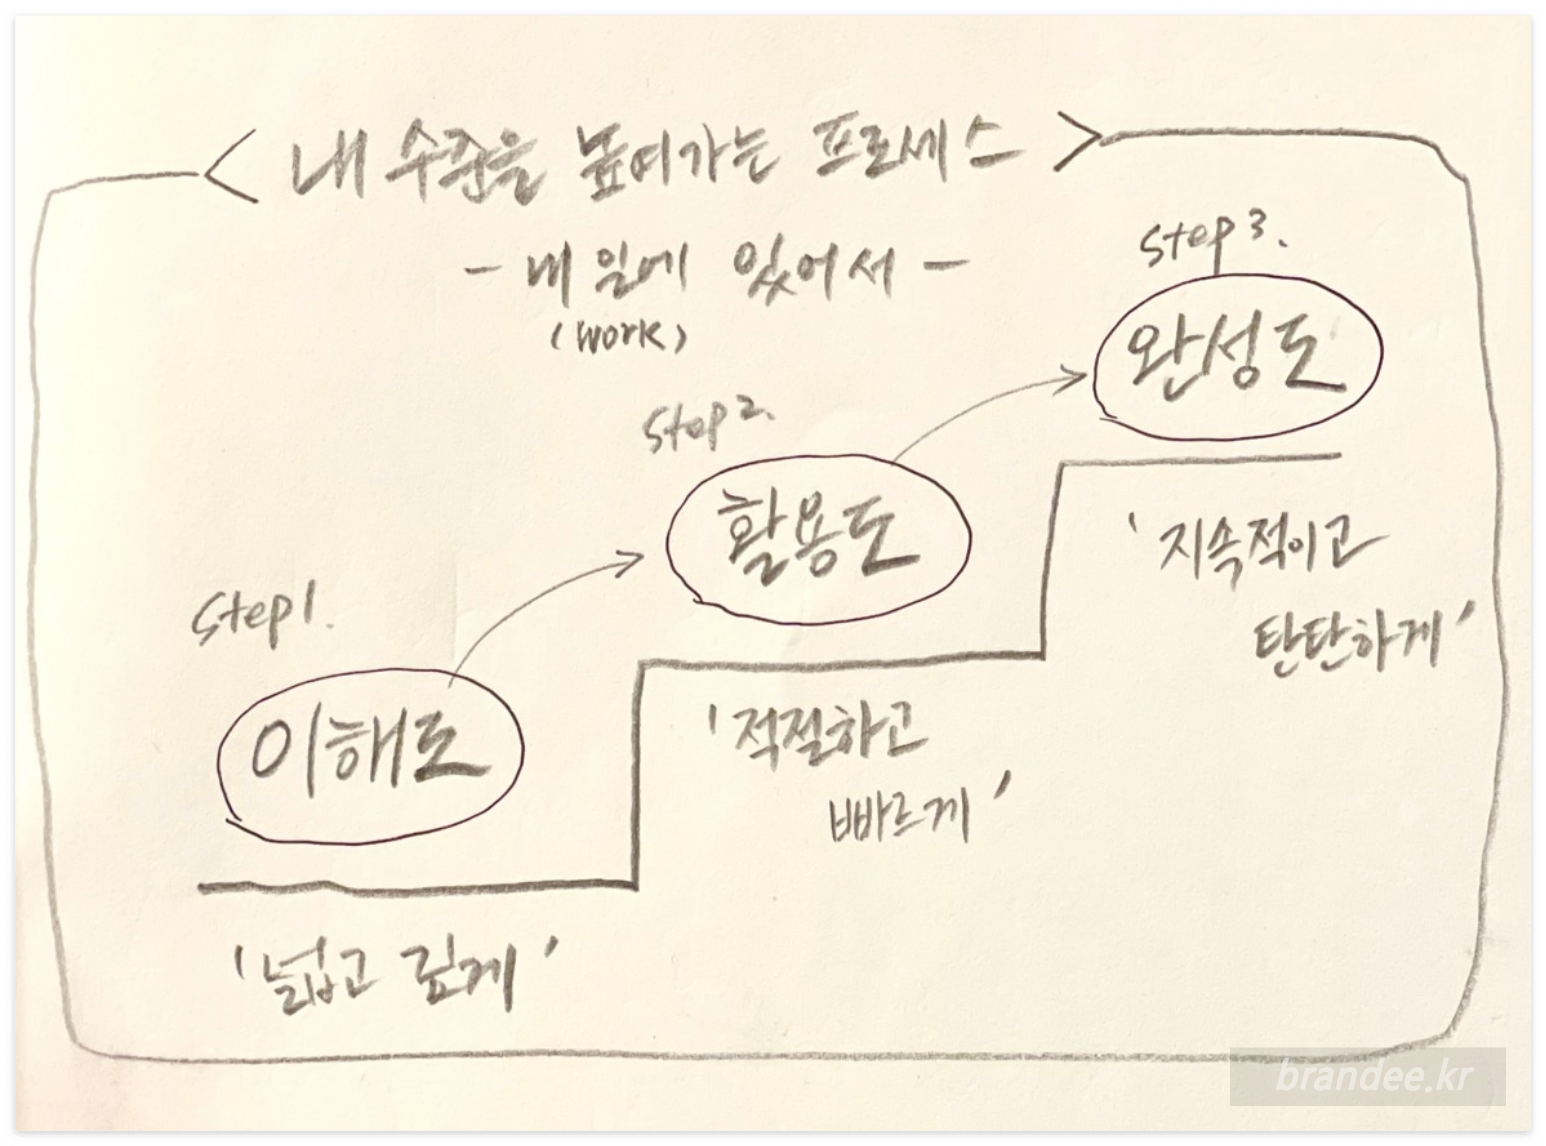 <내 수준을 높여가는 프로세스>
- 내 일에 있어서 -
(work)
Step1.
이해도
'넓고 깊게'
Step2.
활용도
'적절하고
빠르게'
Step3.
완성도
'지속적이고
탄탄하게'
brandee.kr